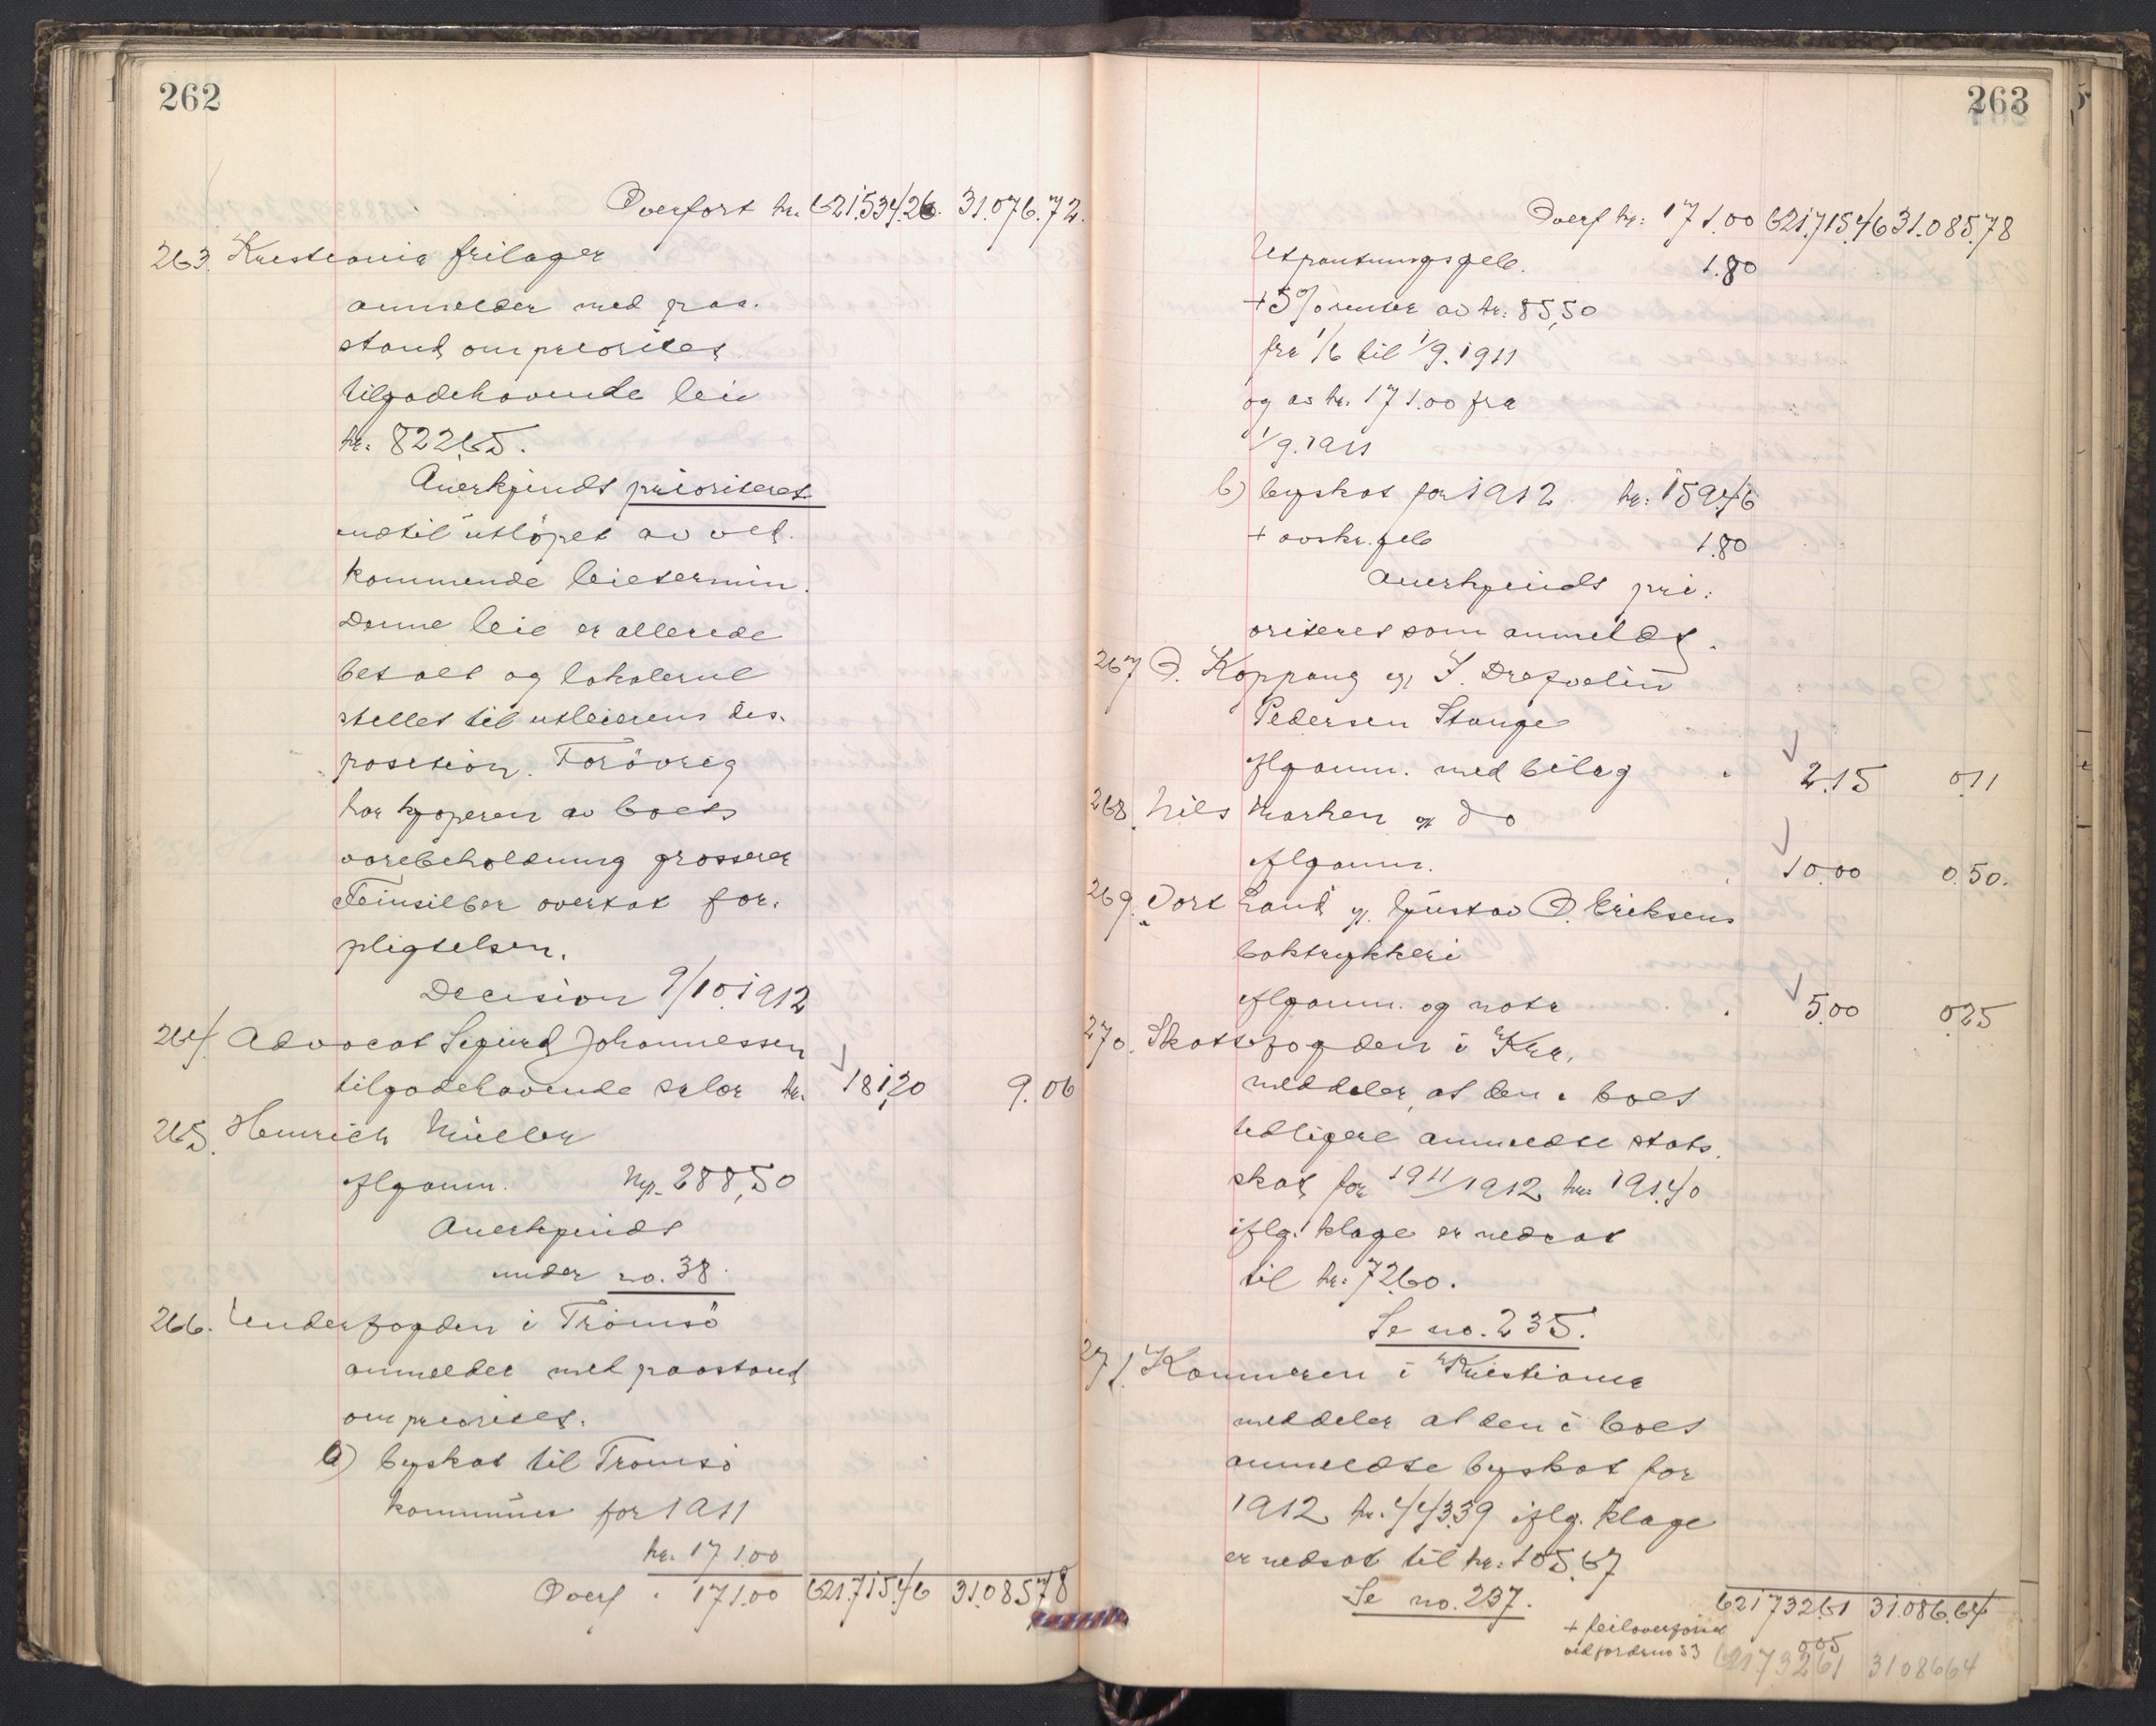 262
Overført kr. 621.534.26. 31.076.72.
263. Kristiania frilager
anmelder med paa-
stand om prioritet
tilgodehavende leie
kr. 822.65.
Anerkjendt prioriteret
indtil utløpet av ved-
kommende leietermin.
Denne leie er allerede
betalt og lokalerne
stillet til utleierens dis-
position. Forøvrig
har kjøperen av boets
varebeholdning grosserer
Feinsilber overtat for-
pligtelsen.
Decision 9/10.1912
264. Advocat Sigurd Johannessen
tilgodehavende salær kr. 181,20 9.06
265. Heinrich Müller
iflg anm. Mk. 288,50
Anerkjendt
under no. 38.
266. Underfogden i Tromsø
anmelder med paastand
om prioritet.
a) byskat til Tromsø
kommune for 1911
kr. 171.00
Overf. 171.00 621.715.46 31.085.78
263
Overf kr: 171.00 621.715.46 31.085.78
Utpantningsgeb. 1.80
+ 5% renter av kr: 85,50
fra 1/6 til 1/9.1911
og av kr. 171.00 fra
1/9.1911
b) byskat for 1912 kr: 159.46
+ avskr. geb 1.80
Anerkjendt pri-
oriteret som anmeldt.
267 O. Koppang og J. Drefvelin
Pedersen Stange
iflg anm. med bilag 2.15 0.11
268. Nils Marken og do
iflg anm. 10.00 0.50.
269. Vort Land og Gustav O. Eriksens
boktrykkeri
iflg anm. og nota 5.00 0.25
270. Skattefogden i Kra.
meddeler, at den i boet
tidligere anmeldte stats-
skat for 1911/1912 kr: 191.40
iflg. klage er nedsat
til kr: 72.60.
Se no. 235.
271. Kæmneren i Kristiania
meddeler at den i boet
anmeldte byskat for
1912 kr. 443.39 iflg. klage
er nedsat til kr: 105.67
Se no. 237.
621732.61 31.086.64
+ feiloverførsel
ved fordr no 53 0.05
621732.61 31086 64